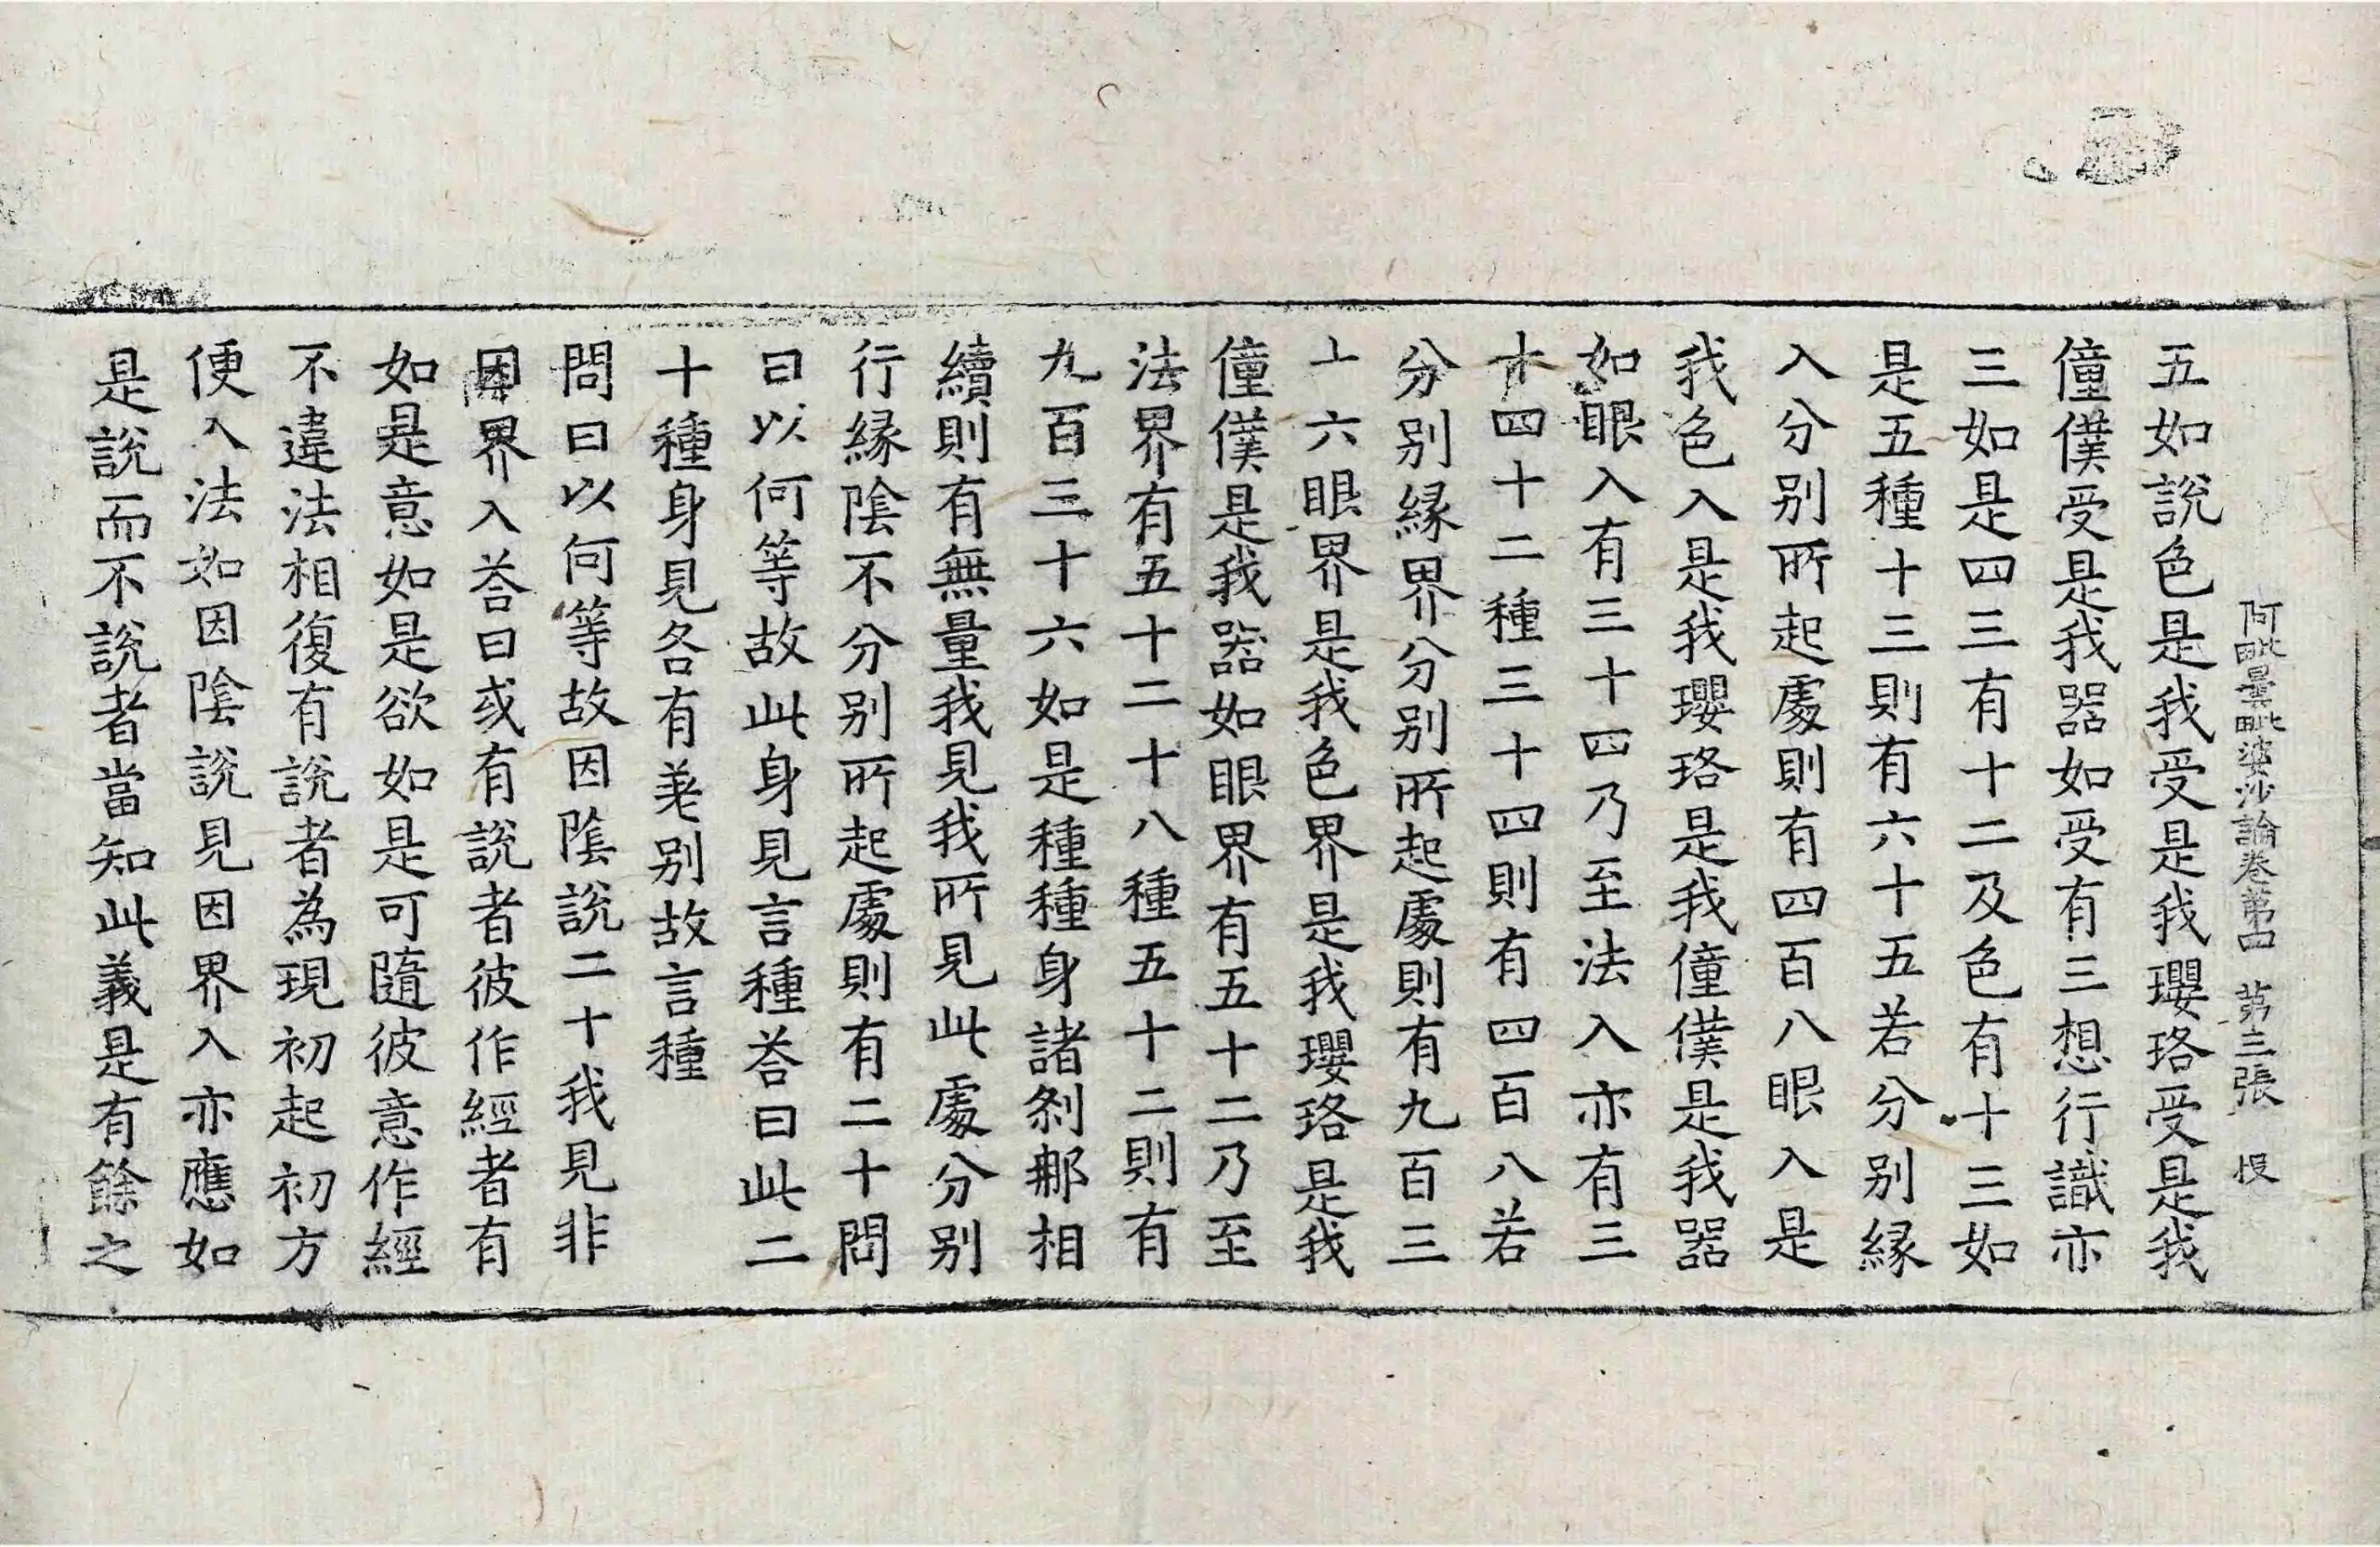 阿毗曇毗婆沙論卷第四 第三張 悞
五如說色是我受是我瓔珞受是我
僮僕受是我器如受有三想行識亦
三如是四三有十二及色有十三如
是五種十三則有六十五若分別緣
入分別所起處則有四百八眼入是
我色入是我瓔珞是我僮僕是我器
如眼入有三十四乃至法入亦有三
十四十二種三十四則有四百八若
分別緣界分別所起處則有九百三
十六眼界是我色界是我瓔珞是我
僮僕是我器如眼界有五十二乃至
法界有五十二十八種五十二則有
九百三十六如是種種身諸剎那相
續則有無量我見我所見此處分別
行緣陰不分別所起處則有二十問
曰以何等故此身見言種荅曰此二
十種身見各有差別故言種
問曰以何等故因陰說二十我見非
因界入荅曰或有說者彼作經者有
如是意如是欲如是可隨彼意作經
不違法相復有說者為現初起初方
便入法如因陰說見因界入亦應如
是說而不說者當知此義是有餘之